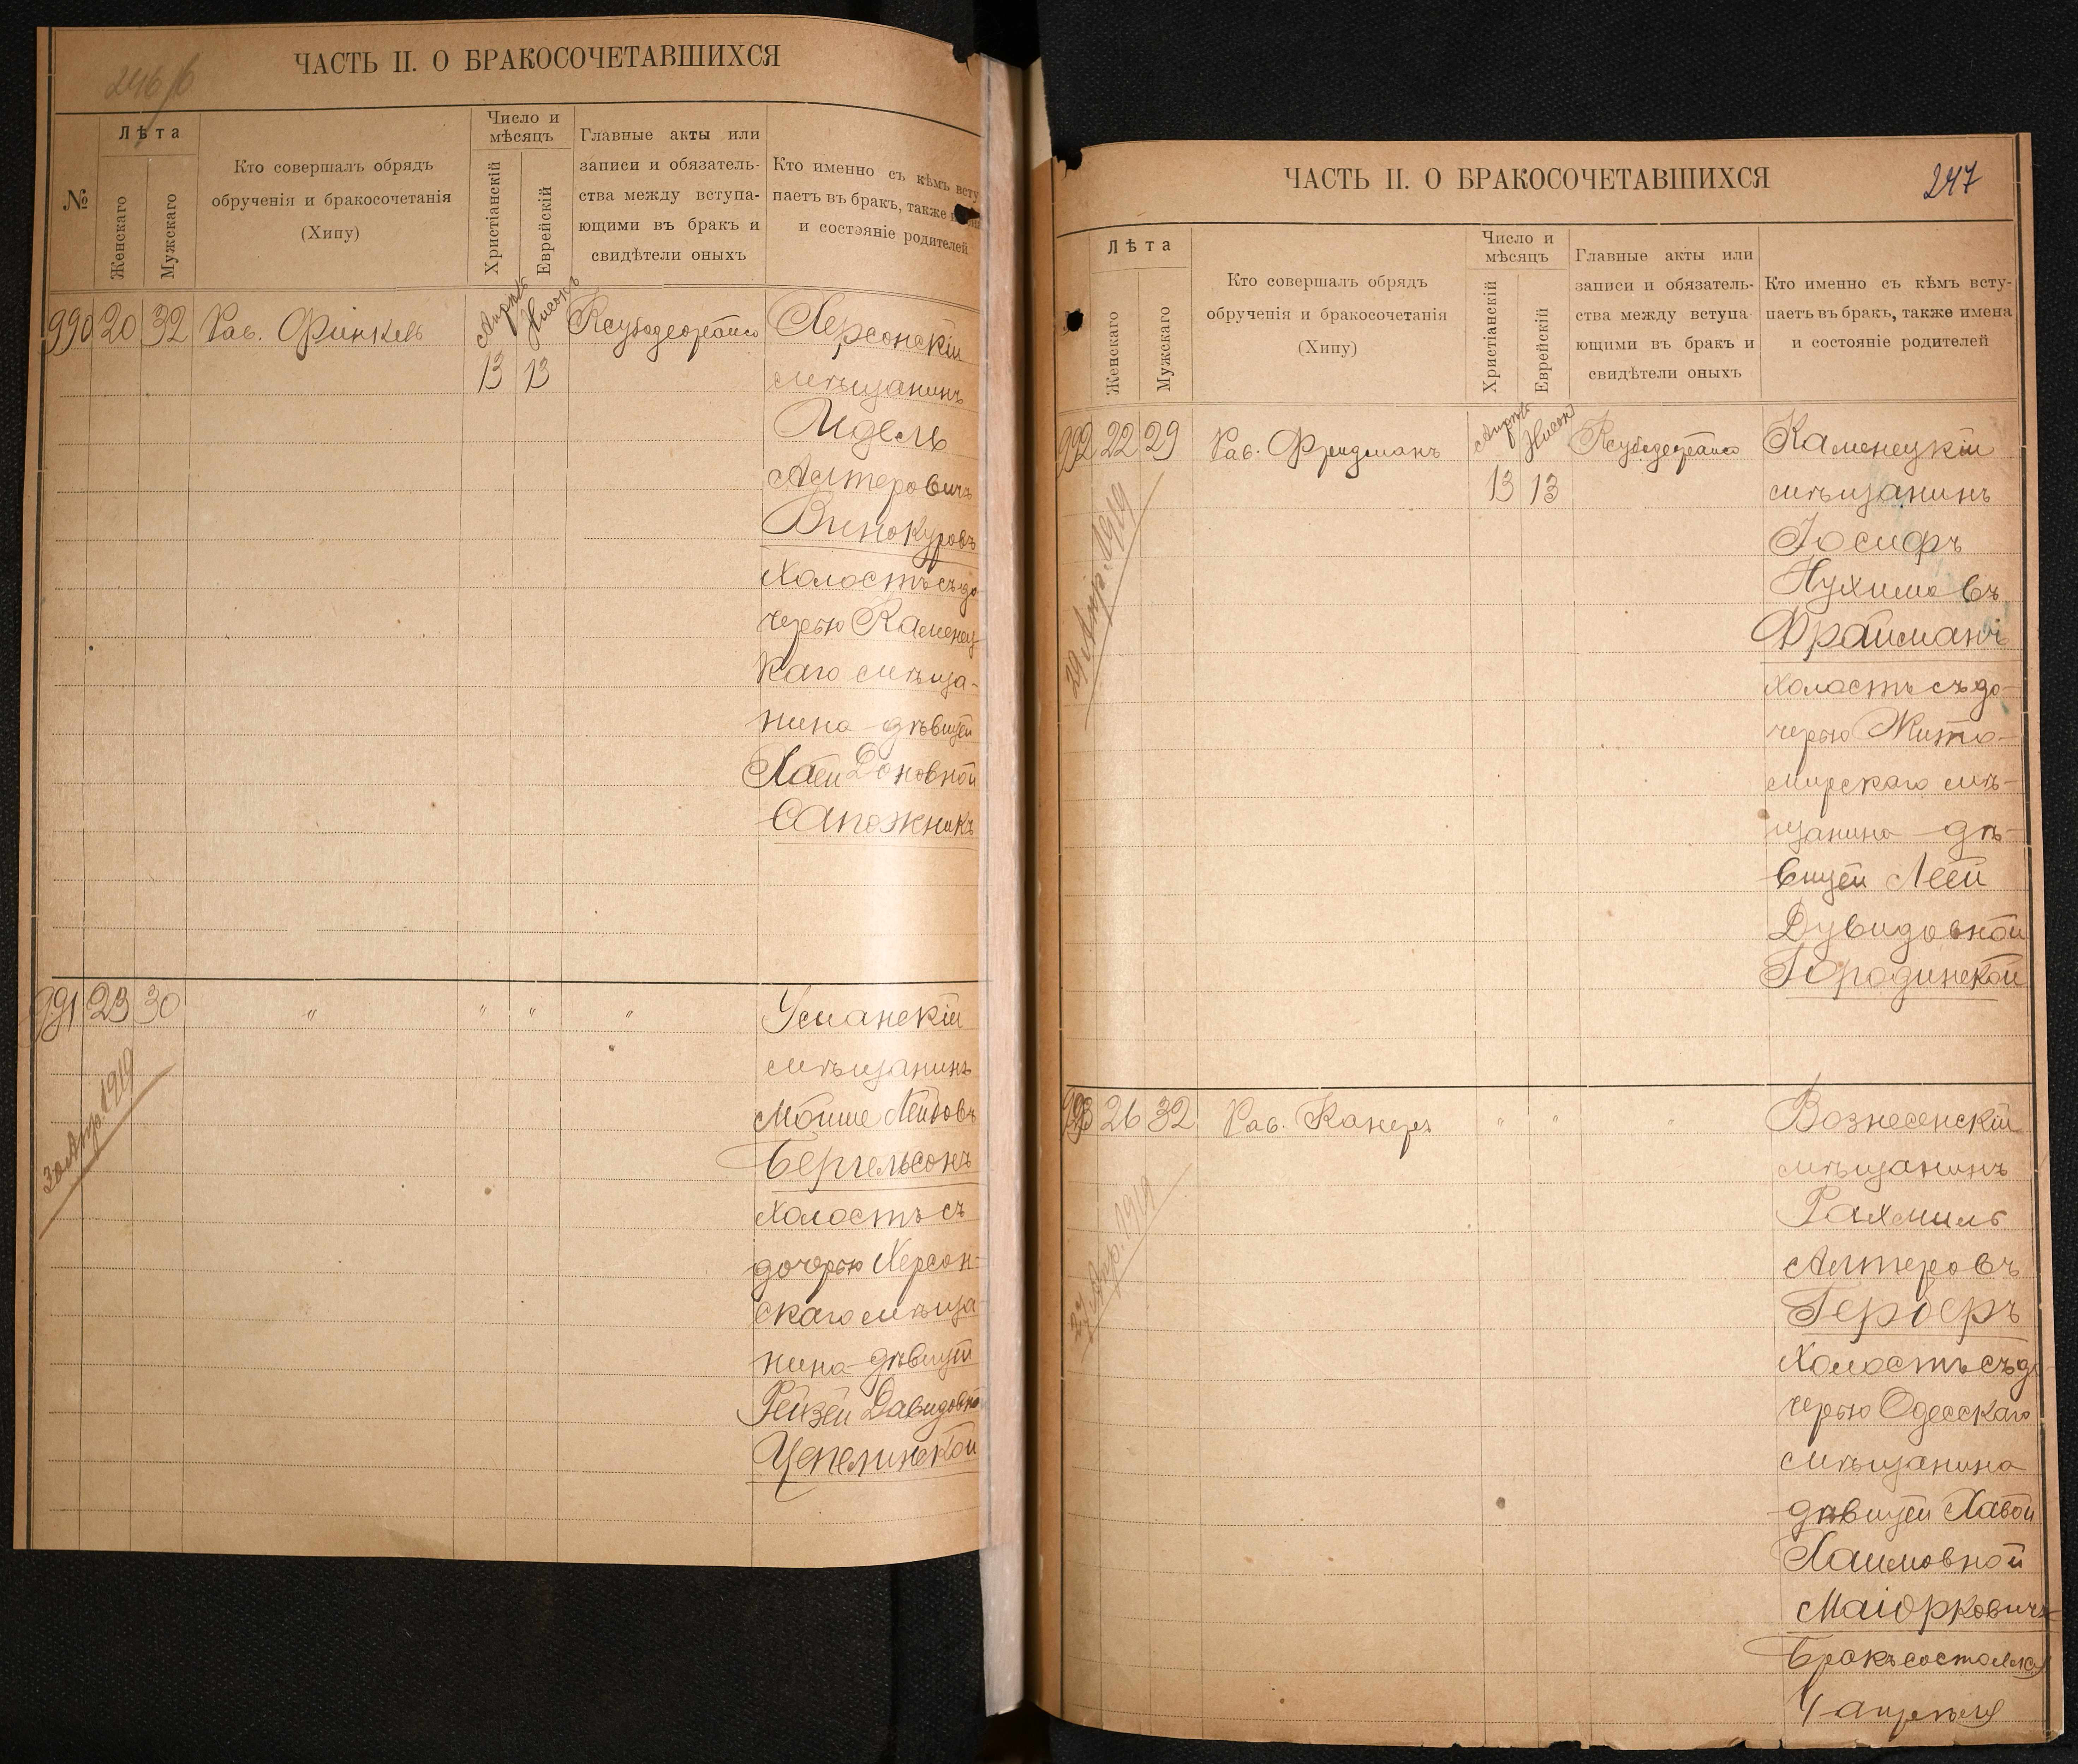 246 об
ЧАСТЬ II. О БРАКОСОЧЕТАВШИХСЯ
№
Лѣта
Женскаго
Мужскаго
Кто совершалъ обрядъ
обрученія и бракосочетанія
(Хипу)
Число и
мѣсяцъ
Христіанскій
Еврейскій
Главные акты или
записи и обязатель-
ства между вступа-
ющими въ бракъ и
свидѣтели оныхъ
Кто именно съ кѣмъ всту
паетъ въ бракъ, также
и состояніе родителей
990 20 32 Рав. Финкель Апрѣль Нисонъ
13 13
Херсонскій
мѣщанинъ
Идель
Алтеровичъ
Винокуровъ
холостъ съ до
черью Каменец
каго мѣща-
нина дѣвицей
Хаей Зоновной
Сапожникъ
991 23 30 " " " "
30 Апр. 1919
Усманскій
мѣщанинъ
Мойше Лейбовъ
Бергельсонъ
холостъ съ
дочерью Херсон-
скаго мѣща-
нина дѣвицей
Рейзей Давидовной
Цепелинской
ЧАСТЬ II. О БРАКОСОЧЕТАВШИХСЯ
247
Лѣта
Женскаго
Мужскаго
Кто совершалъ обрядъ
обрученія и бракосочетанія
(Хипу)
Число и
мѣсяцъ
Христіанскій
Еврейскій
Главные акты или
записи и обязатель-
ства между вступа
ющими въ бракъ и
свидѣтели оныхъ
Кто именно съ кѣмъ всту-
паетъ въ бракъ, также имена
и состояніе родителей
992 22 29 Рав. Фридманъ Апрѣль Нисонъ
13 13
29 Апр. 1919
Каменецкій
мѣщанинъ
Іосифъ
Нухимовъ
Фрайманъ
холостъ съ до-
черью Жито-
мирскаго мѣ-
щанина дѣ-
вицей Леей
Дувидовной
Городинской
993 26 32 Рав. Канеръ " " "
27 Апр. 1919
Вознесенскій
мѣщанинъ
Рахмиль
Алтеровъ
Герберъ
холостъ съ до
черью Одесскаго
мѣщанина
дѣвицей Хавой
Хаимовной
Маіорковичъ
Бракъ состоялся
4 апрѣля